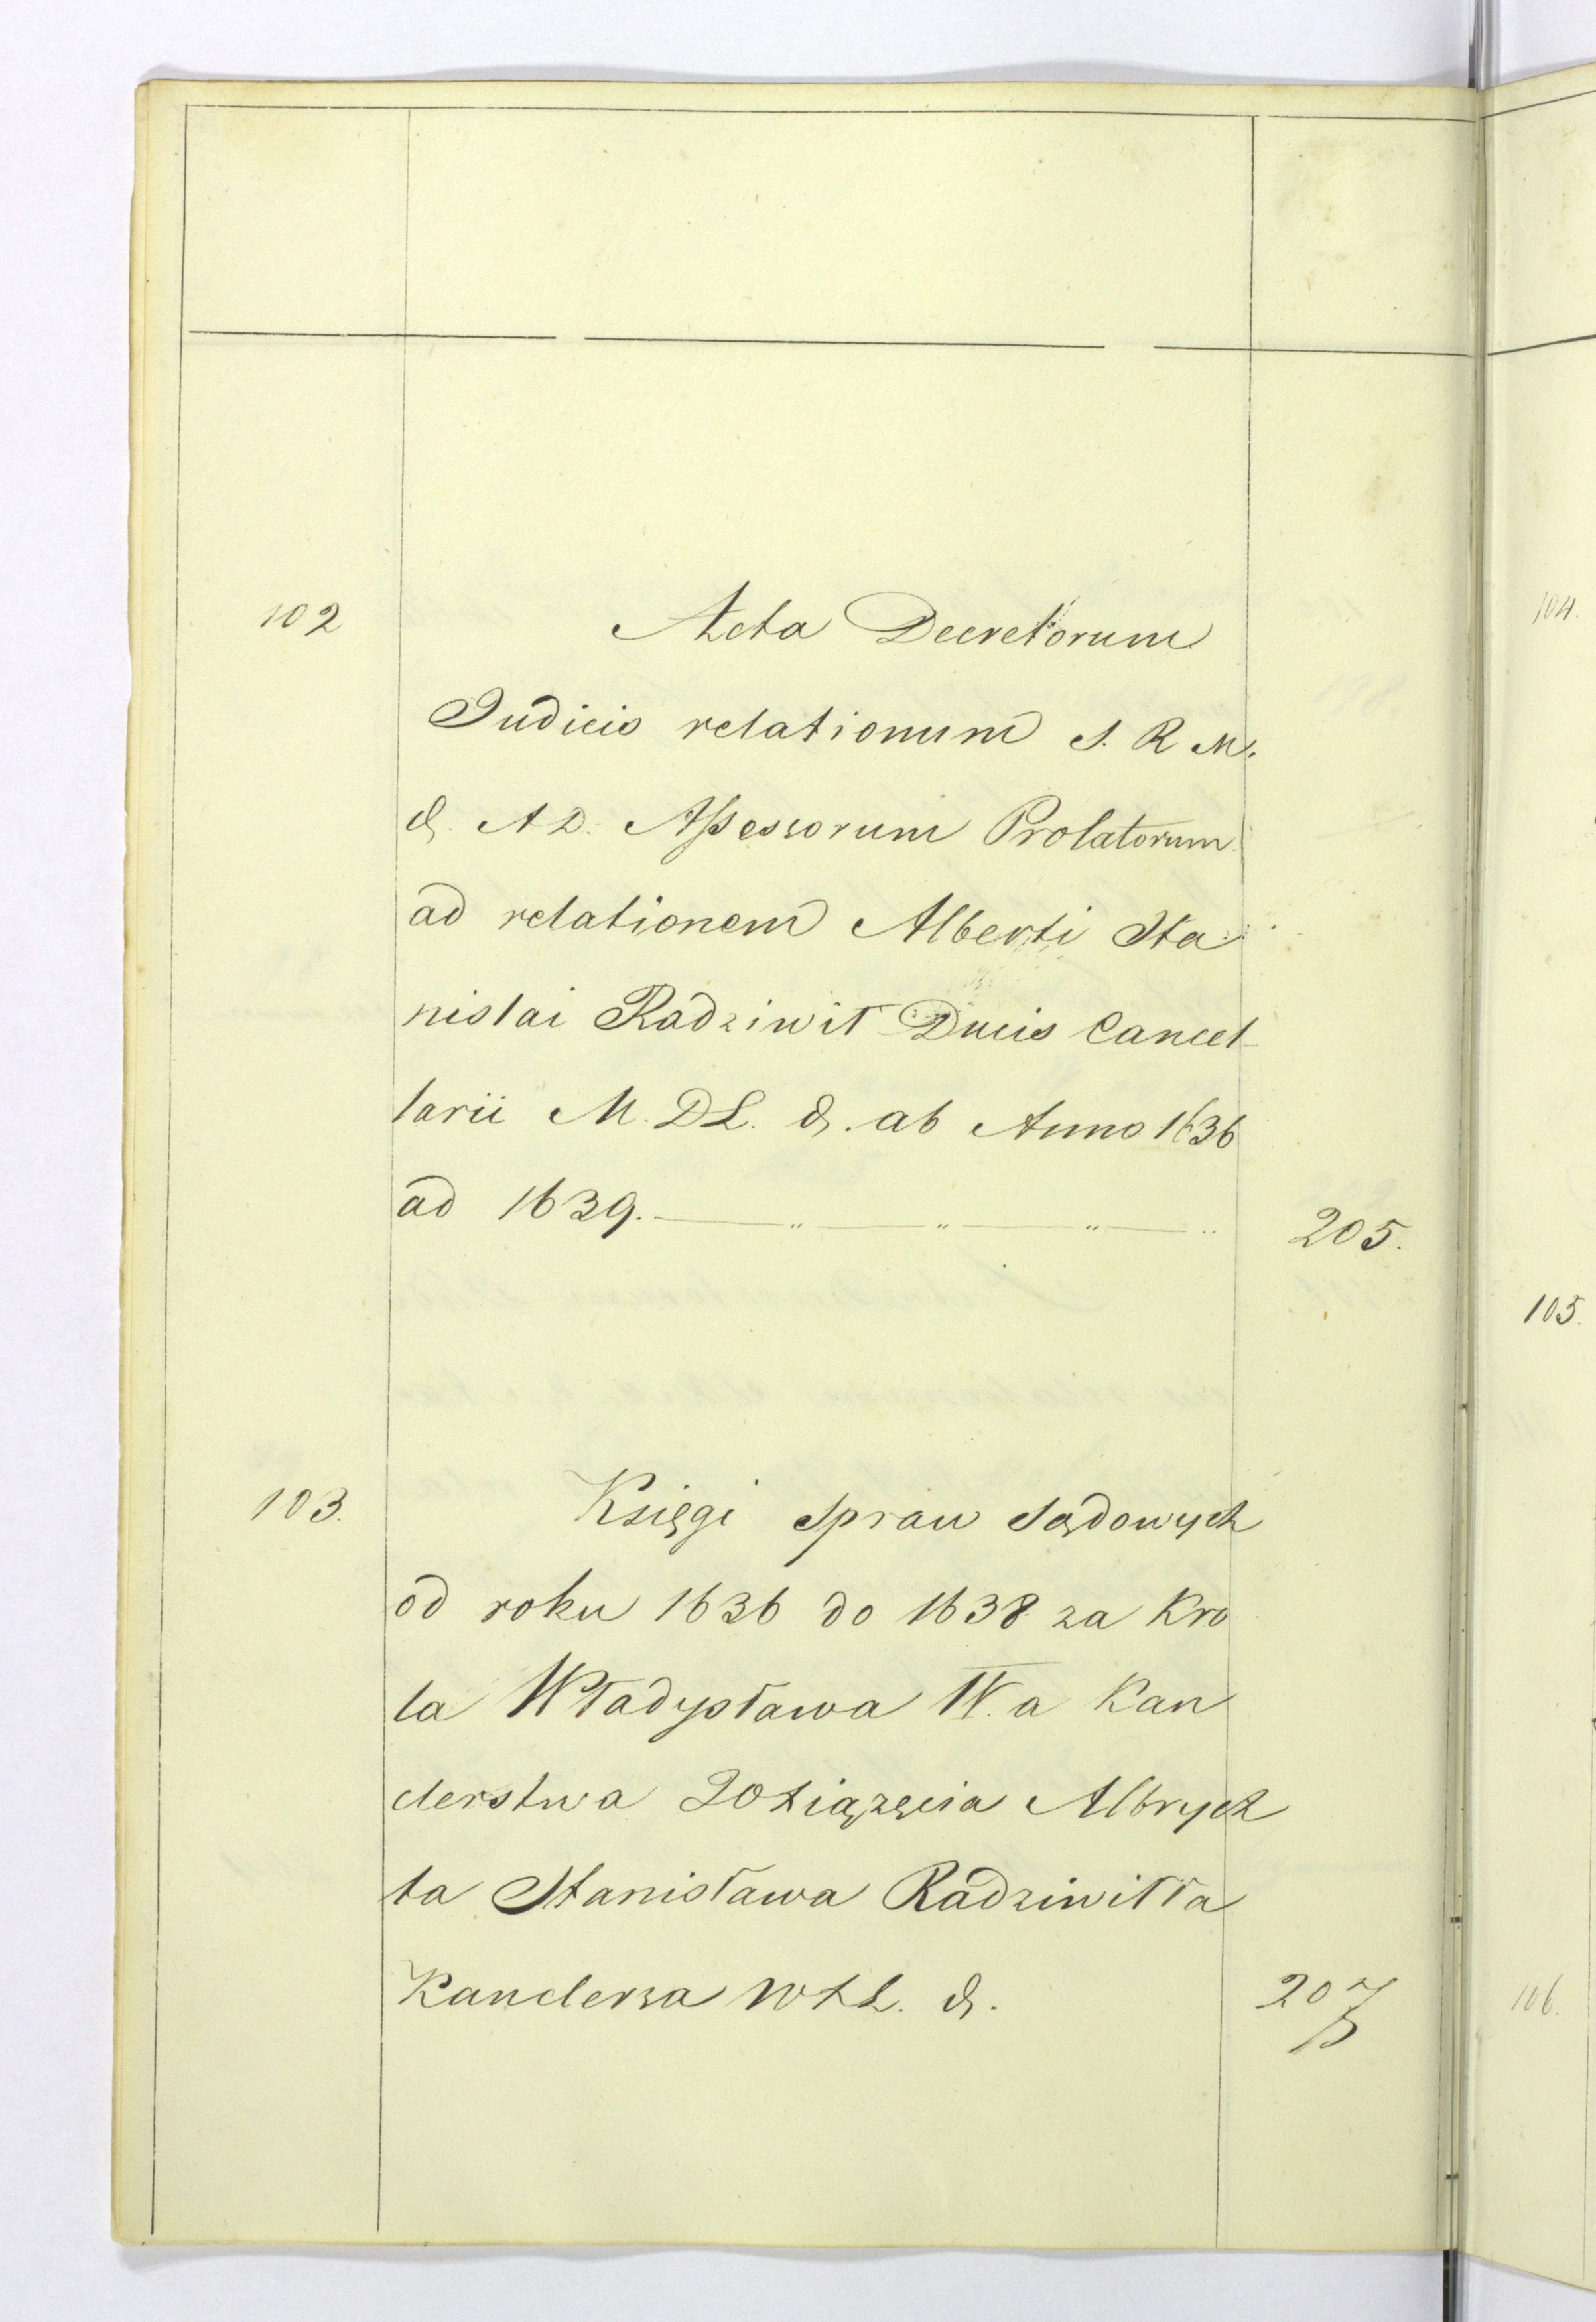 102
Acta Decretorum
Judicio relationum S. R M.
&. A D. Assessorum Prolatorum
ad relationem Alberti Sta
nislai Radziwił Ducis Cancel-
larii M. DL. &. ab Anno 1636
ad 1639. — „ — „ — „ — „ 205.
103.
Księgi Spraw Sądowych
od roku 1636 do 1638 za Kro
la Władysława IV. a Kan
clerstwa Albrych
ta Stanisława Radziwiłła
Kanclerza WXL. &. 207
104.
105.
106.